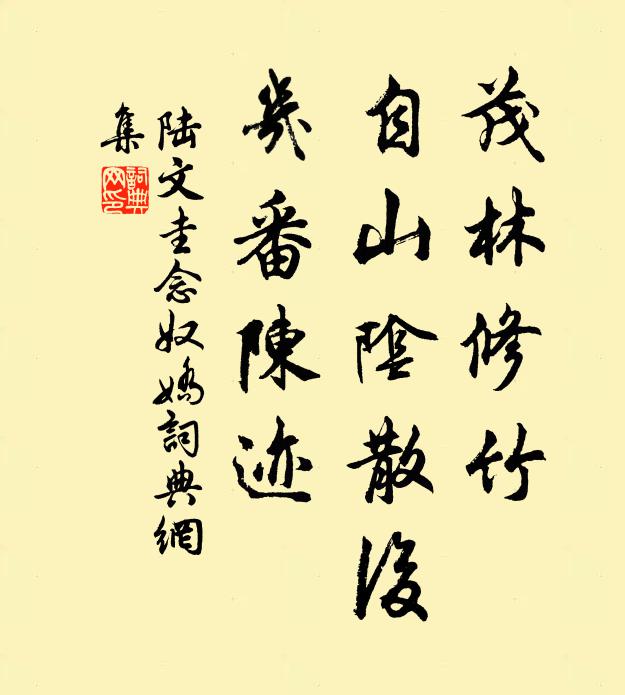 茂林修竹
自山陰散後
幾番陳迹
陸文圭念奴嬌詞典網
集
詞典
网印